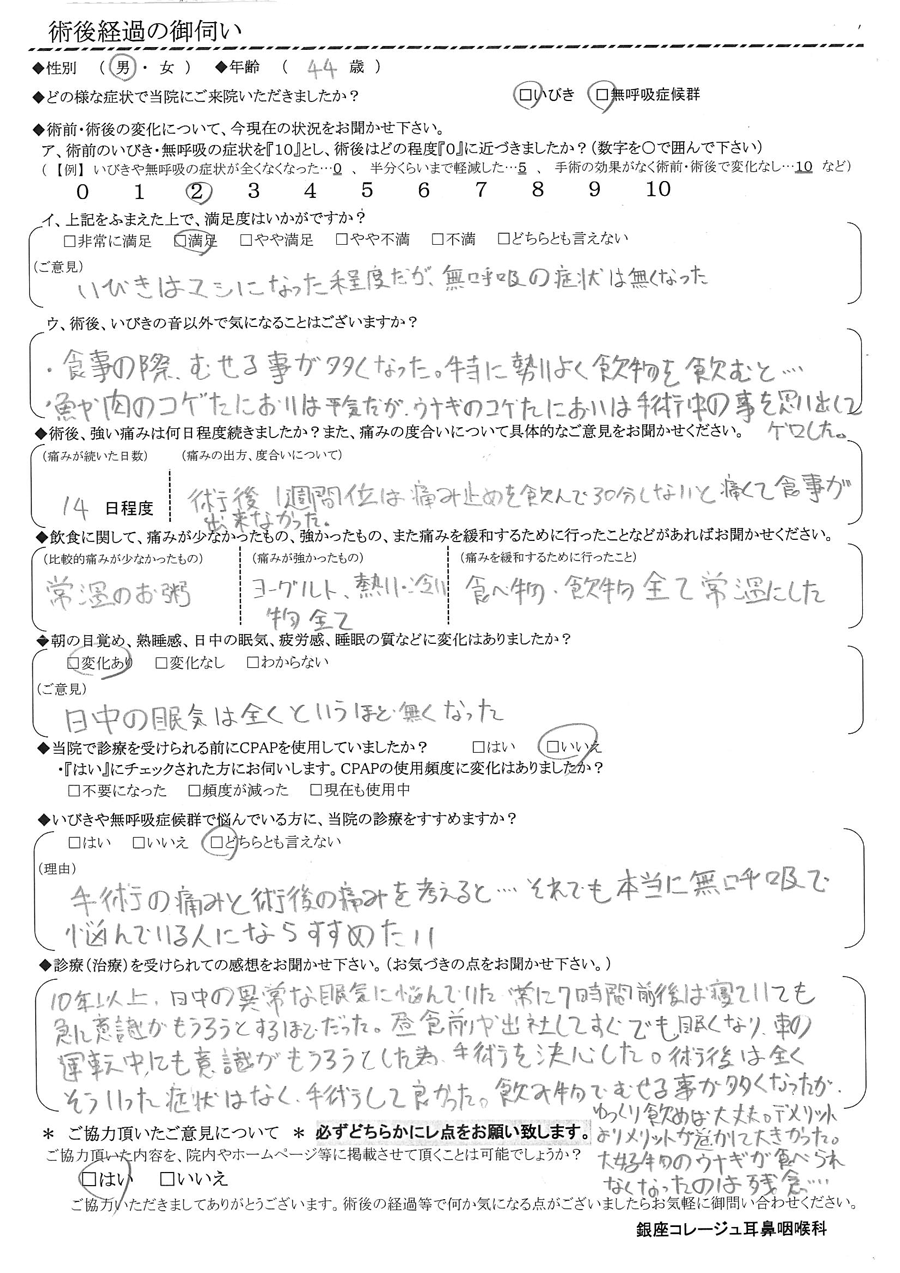 術後経過の御伺い
◆性別 （ 男 ・ 女 ） ◆年齢 （ 44 歳 ）
◆どの様な症状で当院にご来院いただきましたか？ □いびき □無呼吸症候群
◆術前・術後の変化について、今現在の状況をお聞かせ下さい。
ア、術前のいびき・無呼吸の症状を『10』とし、術後はどの程度『0』に近づきましたか？（数字を〇で囲んで下さい）
（【例】いびきや無呼吸の症状が全くなくなった…0 、 半分くらいまで軽減した…5 、 手術の効果がなく術前・術後で変化なし…10 など）
0 1 2 3 4 5 6 7 8 9 10
イ、上記をふまえた上で、満足度はいかがですか？
□非常に満足 □満足 □やや満足 □やや不満 □不満 □どちらとも言えない
（ご意見）
いびきはマシになった程度だが、無呼吸の症状は無くなった
ウ、術後、いびきの音以外で気になることはございますか？
・食事の際、むせる事が多くなった。特に勢いよく飲物を飲むと…
・魚や肉のコゲたにおいは平気だが、ウナギのコゲたにおいは手術中の事を思い出して
ゲロした。
◆術後、強い痛みは何日程度続きましたか？また、痛みの度合いについて具体的なご意見をお聞かせください。
（痛みが続いた日数） （痛みの出方、度合いについて）
14 日程度 術後1週間位は痛み止めを飲んで30分しないと痛くて食事が
出来なかった。
◆飲食に関して、痛みが少なかったもの、強かったもの、また痛みを緩和するために行ったことなどがあればお聞かせください。
（比較的痛みが少なかったもの） （痛みが強かったもの） （痛みを緩和するために行ったこと）
常温のお粥 ヨーグルト、熱い・冷い 食べ物・飲物全て常温にした
物全て
◆朝の目覚め、熟睡感、日中の眠気、疲労感、睡眠の質などに変化はありましたか？
□変化あり □変化なし □わからない
（ご意見）
日中の眠気は全くというほど無くなった
◆当院で診療を受けられる前にCPAPを使用していましたか？ □はい □いいえ
・『はい』にチェックされた方にお伺いします。CPAPの使用頻度に変化はありましたか？
□不要になった □頻度が減った □現在も使用中
◆いびきや無呼吸症候群で悩んでいる方に、当院の診療をすすめますか？
□はい □いいえ □どちらとも言えない
（理由）
手術の痛みと術後の痛みを考えると… それでも本当に無呼吸で
悩んでいる人にならすすめたい
◆診療（治療）を受けられての感想をお聞かせ下さい。（お気づきの点をお聞かせ下さい。）
10年以上、日中の異常な眠気に悩んでいた 常に7時間前後は寝ていても
急に意識がもうろうとするほどだった。昼食前や出社してすぐでも眠くなり、車の
運転中にも意識がもうろうとした為、手術を決心した。術後は全く
そういった症状はなく、手術して良かった。飲み物でむせる事が多くなったが、
ゆっくり飲めば大丈夫。デメリット
よりメリットが遥かに大きかった。
大好物のウナギが食べられ
なくなったのは残念…
＊ ご協力頂いたご意見について ＊ 必ずどちらかにレ点をお願い致します。
ご協力頂いた内容を、院内やホームページ等に掲載させて頂くことは可能でしょうか？
□はい □いいえ
ご協力いただきましてありがとうございます。術後の経過等で何か気になる点がございましたらお気軽に御問い合わせください。
銀座コレージュ耳鼻咽喉科